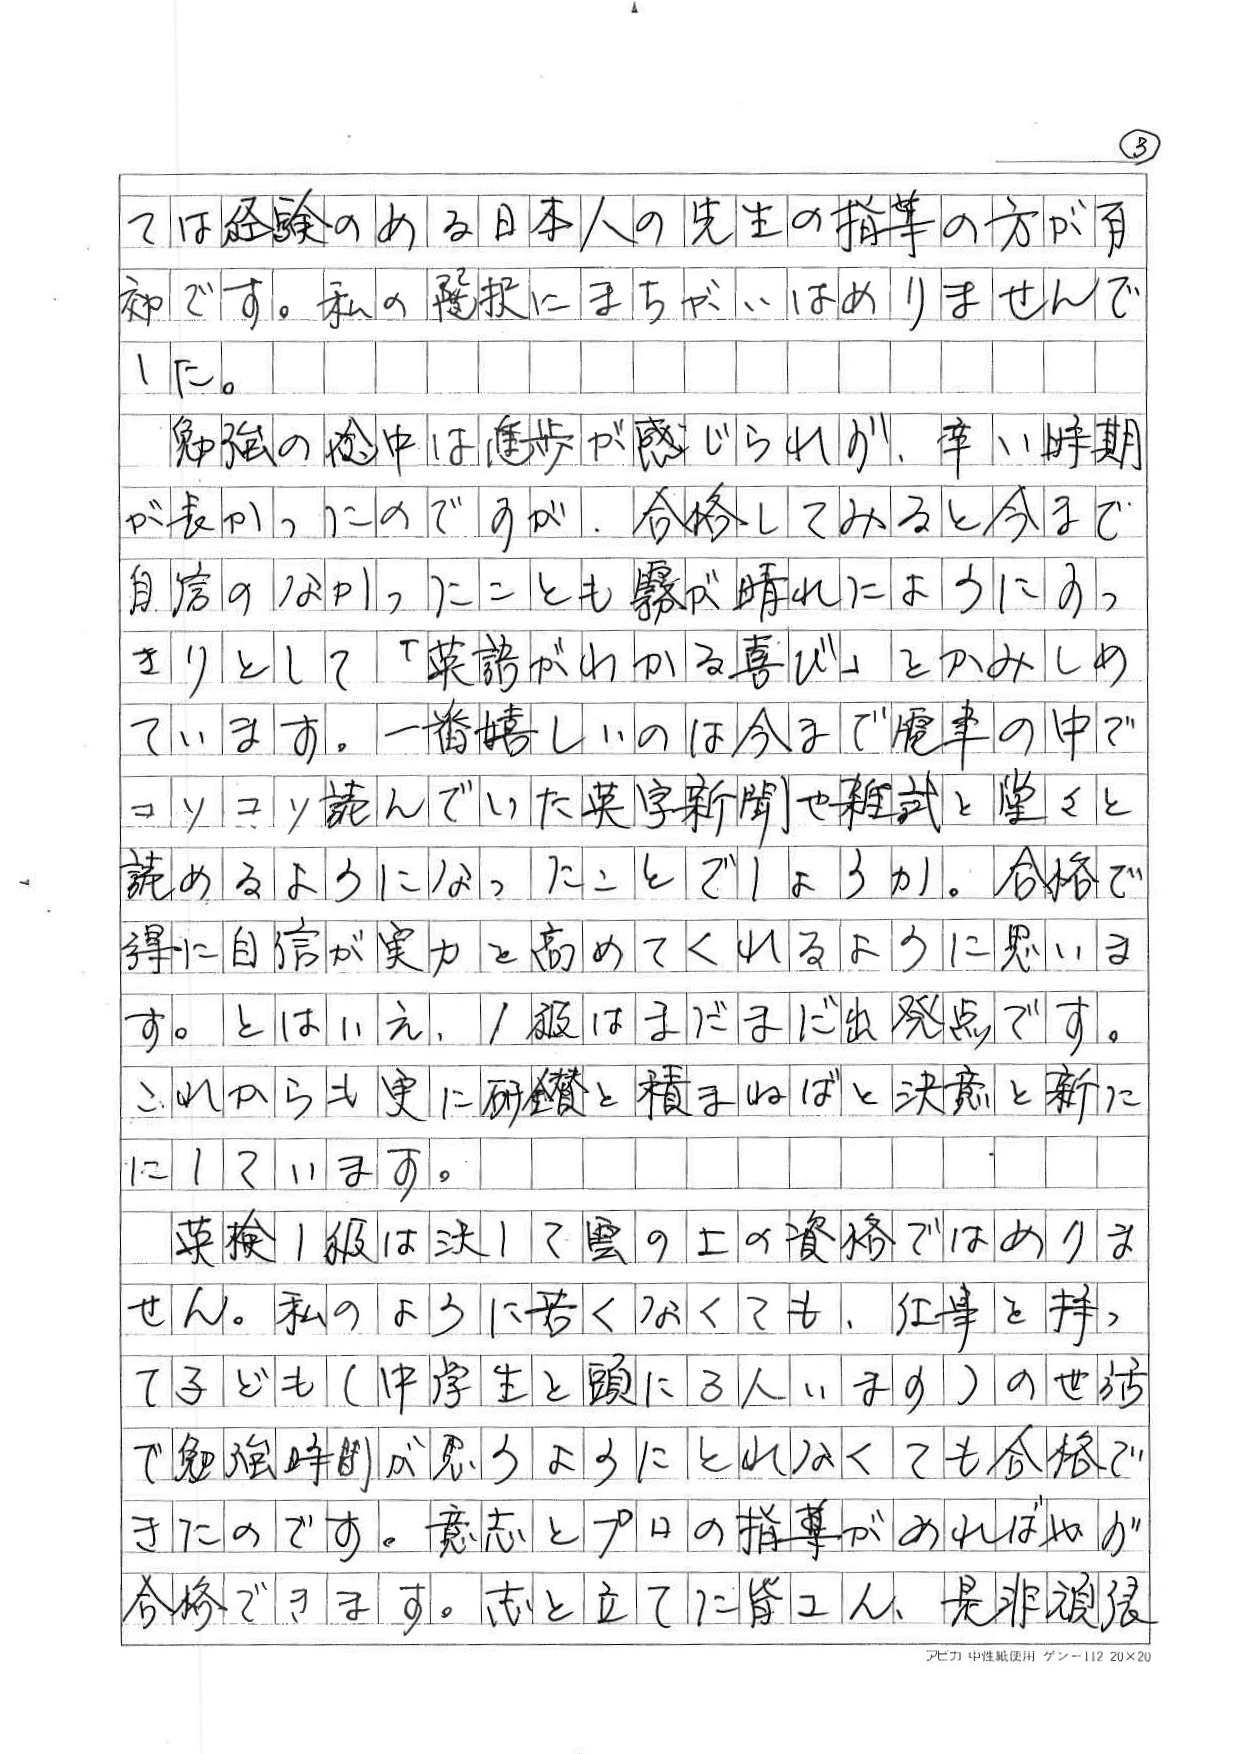 ③
ては経験のある日本人の先生の指導の方が有
効です。私の選択にまちがいはありませんで
した。
勉強の途中は進歩が感じられず、辛い時期
が長かったのですが、合格してみると今まで
自信のなかったことも霧が晴れたようにすっ
きりとして「英語がわかる喜び」をかみしめ
ています。一番嬉しいのは今まで電車の中で
コソコソ読んでいた英字新聞や雑誌を堂々と
読めるようになったことでしょうか。合格で
得た自信が実力を高めてくれるように思いま
す。とはいえ、1級はまだまだ出発点です。
これからも更に研鑽を積まねばと決意を新た
にしています。
英検1級は決して雲の上の資格ではありま
せん。私のように若くなくても、仕事を持っ
て子ども(中学生を頭に3人います)の世話
で勉強時間が思うようにとれなくても合格で
きたのです。意志とプロの指導があれば必ず
合格できます。志を立てた皆さん、是非頑張
アピカ 中性紙使用 ゲンー112 20×20